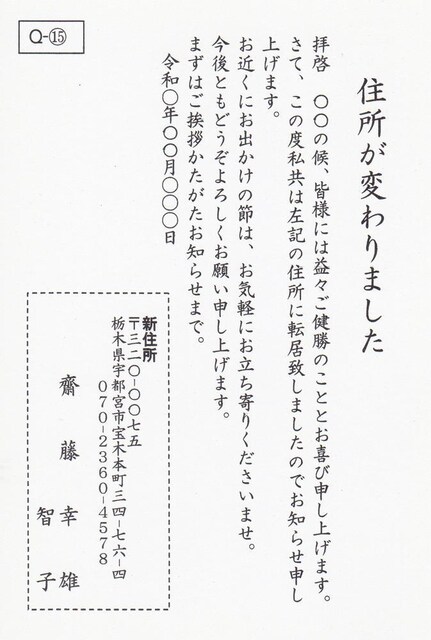 Q-⑮
住所が変わりました
拝啓　〇〇の候、皆様には益々ご健勝のこととお喜び申し上げます。
さて、この度私共は左記の住所に転居致しましたのでお知らせ申し
上げます。
お近くにお出かけの節は、お気軽にお立ち寄りくださいませ。
今後ともどうぞよろしくお願い申し上げます。
まずはご挨拶かたがたお知らせまで。
令和〇年〇〇月〇〇〇日
新住所
〒三二〇-〇〇七五
栃木県宇都宮市宝木本町三四-七六-四
070-2360-4578
齋藤幸雄
智子